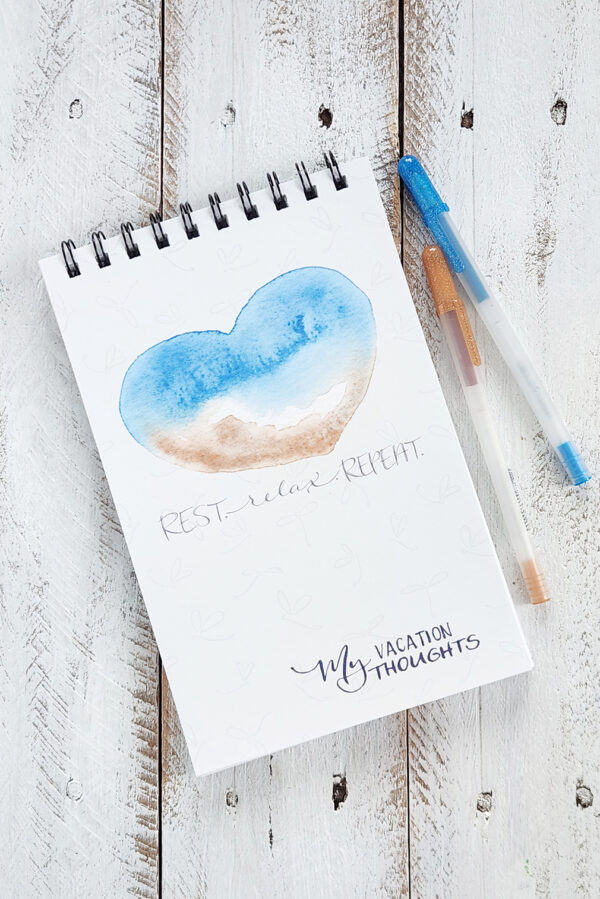 REST. relax. REPEAT.
My VACATION
THOUGHTS